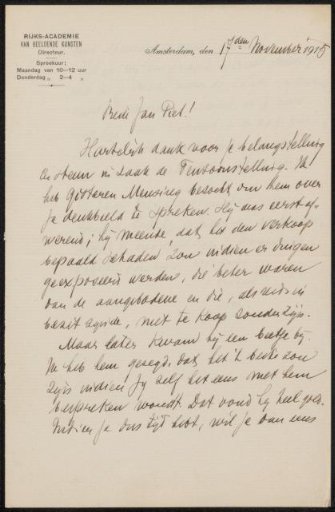 RIJKS-ACADEMIE
VAN BEELDENDE KUNSTEN
Directeur.
Spreekuur:
Maandag van 10—12 uur
Donderdag „ 2—4 „
Amsterdam, den 17den November 1915
Jan Piet!
Hartelijk dank voor je belangstelling
en steun in zaak de Tentoonstelling. Ik
heb gisteren bezocht om hem over
je denkbeeld te spreken. Hij was eerst af-
werend; hij meende, dat het den verkoop
bepaald schaden zou indien er dingen
geëxposeerd werden, die beter waren
dan de aangebodene en die, als reeds in
bezit zijnde, niet te koop zouden zijn.
Maar later kwam hij een beetje bij.
Ik heb hem gezegd, dat het 't beste zou
zijn indien jij zelf het eens met hem
bespreken wondt. Dat vond hij heel goed.
Indien je dus tijd hebt, wil je dan eens